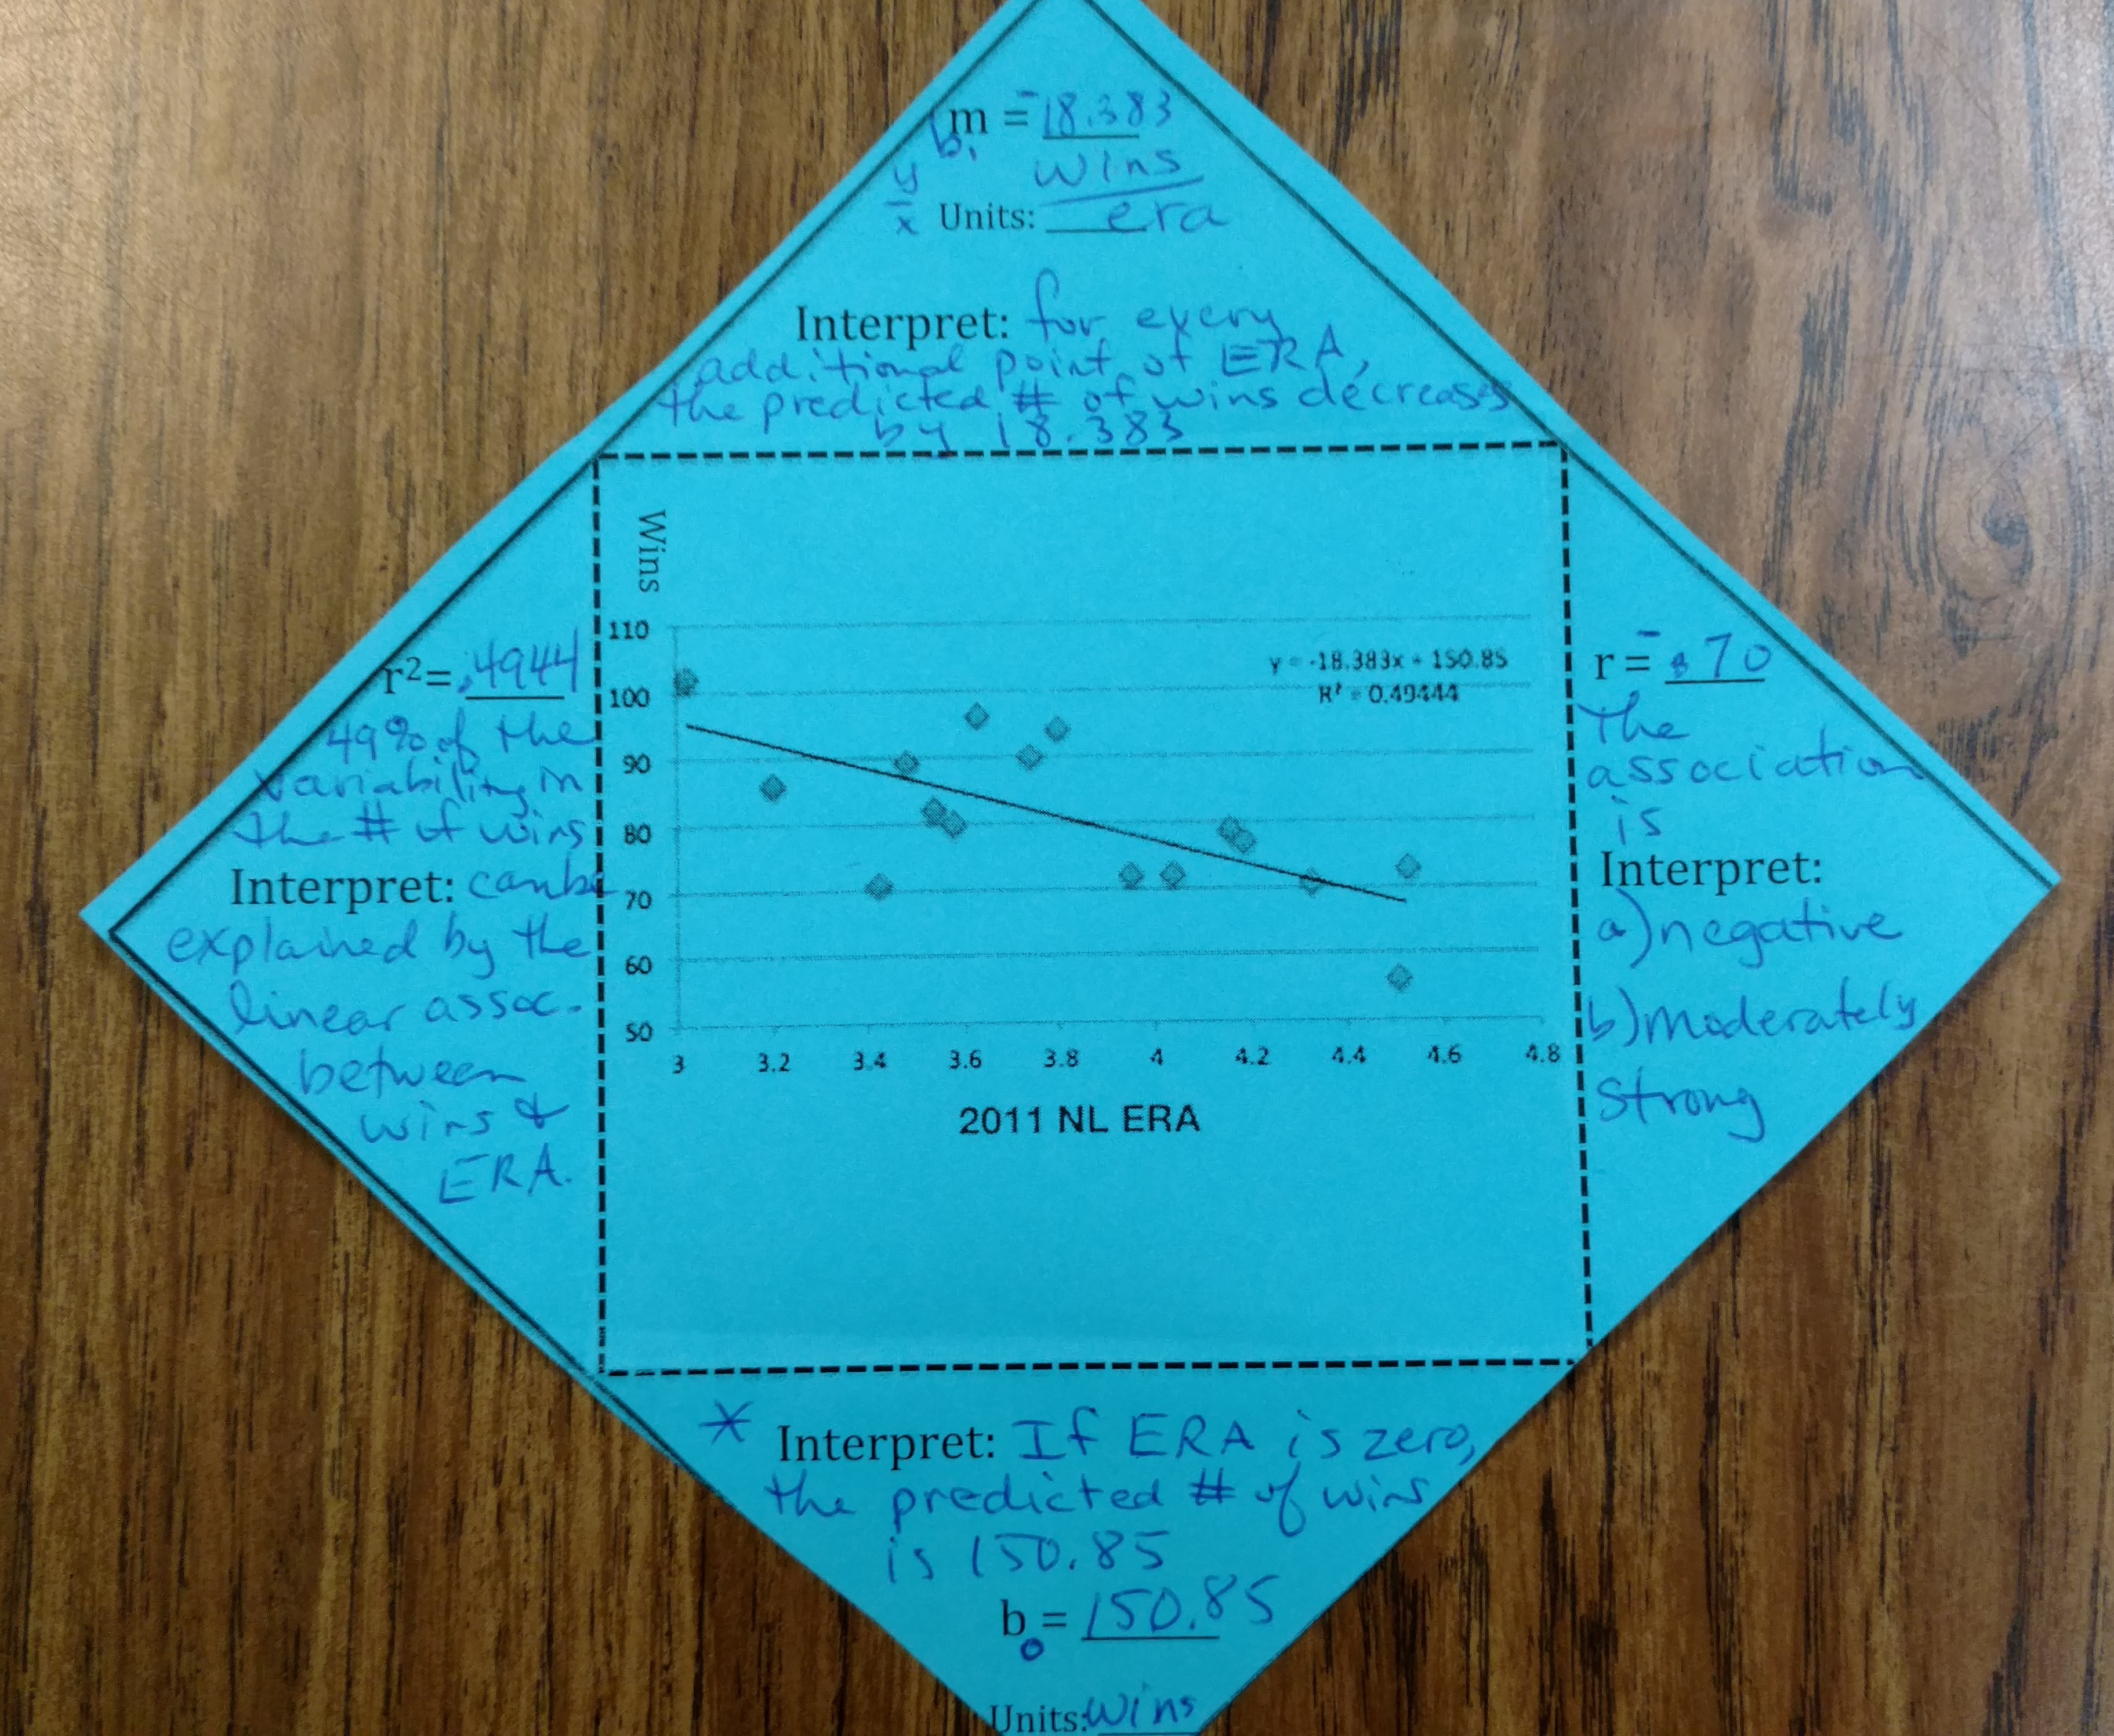 m = -18.383
b₁
wins
y/x Units: era
Interpret: for every
additional point of ERA,
the predicted # of wins decreases
by 18.383
r²= .4944
49% of the
variability in
the # of wins
Interpret: can be
explained by the
linear assoc.
between
wins &
ERA.
Wins
110
100
90
80
70
60
50
y = -18.383x + 150.85
R² = 0.49444
3 3.2 3.4 3.6 3.8 4 4.2 4.4 4.6 4.8
2011 NL ERA
r = -.70
The
association
is
Interpret:
a) negative
b) moderately
strong
* Interpret: If ERA is zero,
the predicted # of wins
is 150.85
b₀ = 150.85
Units: wins